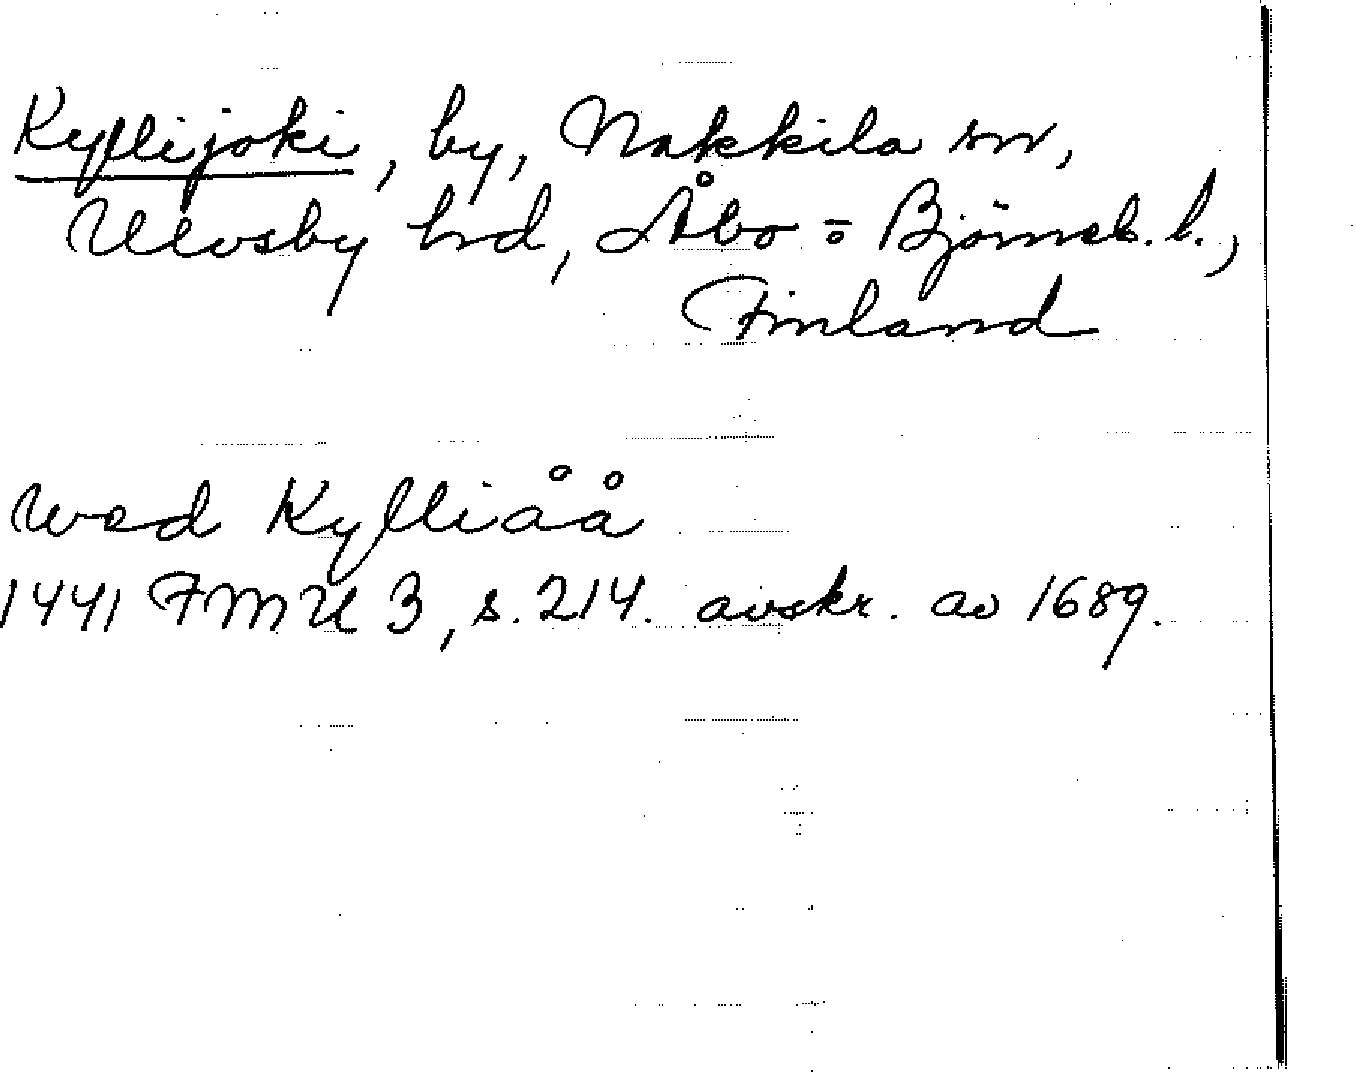 Kyllijoki, by, Nakkila sn,
Ulvsby hd, Åbo = Björneb. l.,
Finland
wed Kylliåå
1441 FMU 3, s. 214. avskr. av 1689.